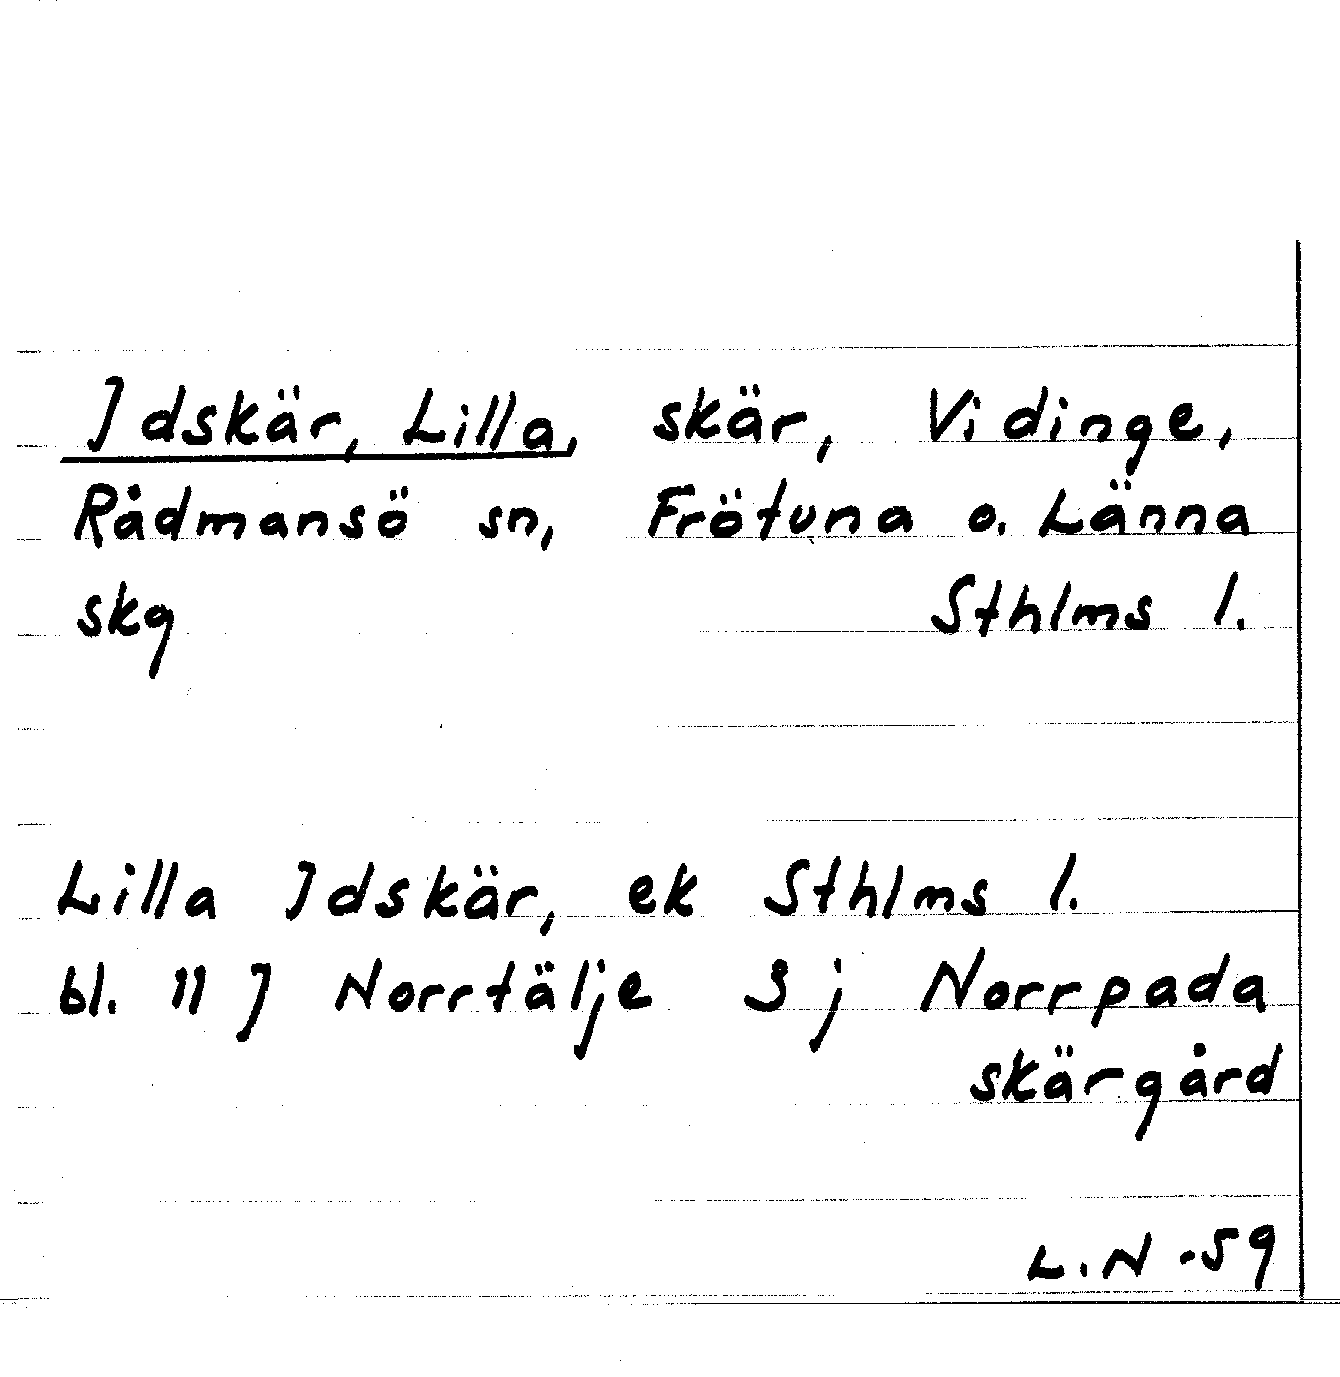 Idskär, Lilla, skär, Vidinge,
Rådmansö sn, Frötuna o. Länna
skg Sthlms l.
Lilla Idskär, ek Sthlms l.
bl. 11 I Norrtälje 3 j Norrpada
skärgård
L.N -59